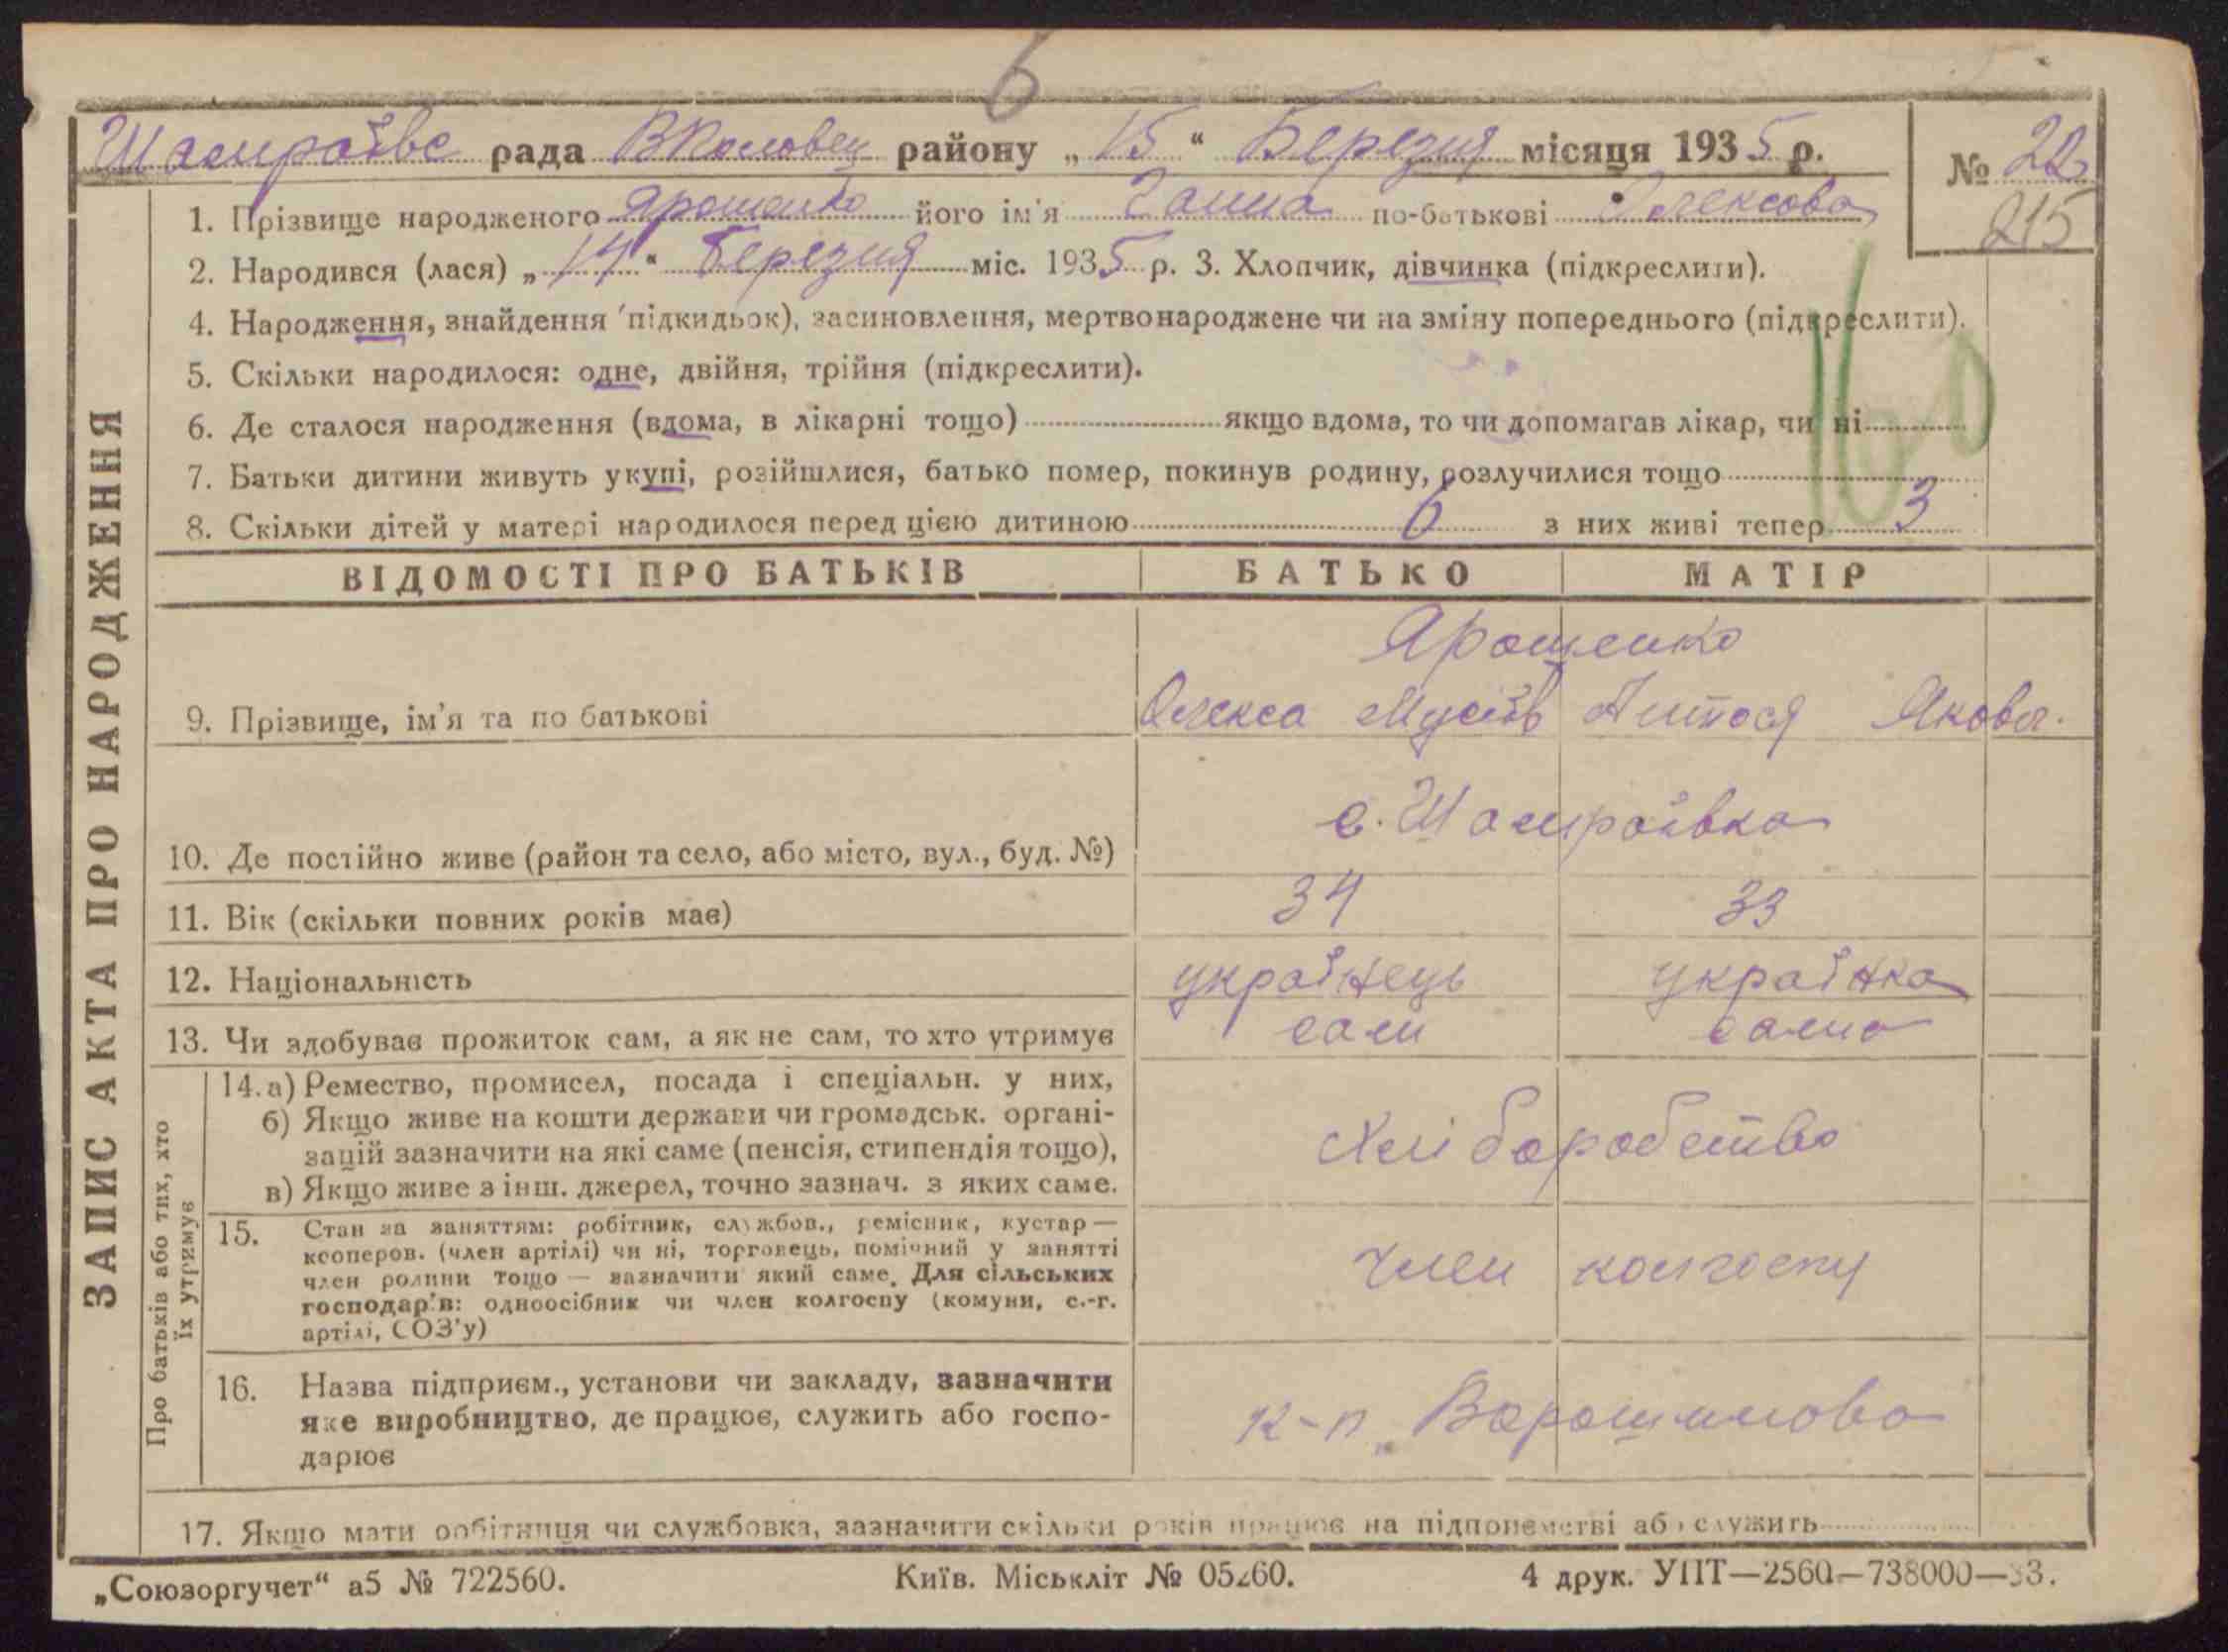 6
Шамраївс рада В Половец району „15“ Березня місяця 1935 р.
№ 22
215
1. Прізвище народженого Ярошенко його ім'я Ганна по-батькові Олексова
2. Народився (лася) „14“ Березня міс. 1935 р. 3. Хлопчик, дівчинка (підкреслити).
4. Народження, знайдення 'підкидьок), засиновлення, мертвонароджене чи на зміну попереднього (підкреслити).
5. Скільки народилося: одне, двійня, трійня (підкреслити).
6. Де сталося народження (вдома, в лікарні тощо) якщо вдома, то чи допомагав лікар, чи ні
7. Батьки дитини живуть укупі, розійшлися, батько помер, покинув родину, розлучилися тощо
8. Скільки дітей у матері народилося перед цією дитиною 6 з них живі тепер 3
ЗАПИС АКТА ПРО НАРОДЖЕННЯ
ВІДОМОСТІ ПРО БАТЬКІВ БАТЬКО МАТІР
Ярошенко
9. Прізвище, ім'я та по батькові Олекса Мусіїв Антося Яковл.
с. Шамраївка
10. Де постійно живе (район та село, або місто, вул., буд. №)
11. Вік (скільки повних років має) 34 33
12. Національність українець українка
13. Чи здобуває прожиток сам, а як не сам, то хто утримує сам сама
Про батьків або тих, хто
їх утримує
14. а) Ремество, промисел, посада і спеціальн. у них,
б) Якщо живе на кошти держави чи громадськ. органі-
зацій зазначити на які саме (пенсія, стипендія тощо),
в) Якщо живе з інш. джерел, точно зазнач. з яких саме.
Хліборобство
15. Стан за заняттям: робітник, службов., ремісник, кустар —
кооперов. (член артілі) чи ні, торговець, помічний у занятті
член родини тощо — зазначити який саме. Для сільських
господар'в: одноосібник чи член колгоспу (комуни, с.-г.
артілі, СОЗ'у)
член колгоспу
16. Назва підприєм., установи чи закладу, зазначити
яке виробництво, де працює, служить або госпо-
дарює
к-п „Ворошилова
17. Якщо мати робітниця чи службовка, зазначити скільки років працює на підприємстві або служить
„Союзоргучет“ а5 № 722560. Київ. Міськліт № 05260. 4 друк. УПТ—2560—738000—33.